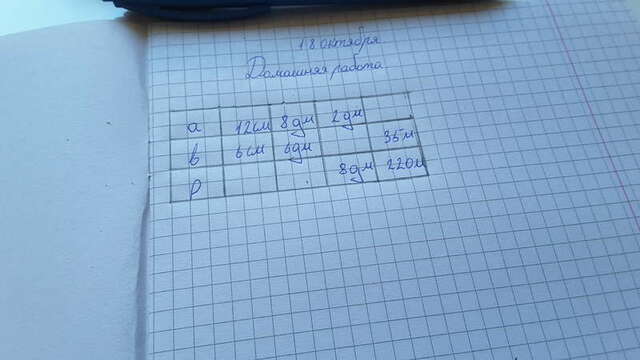 18 октября
Домашняя работа
a 12см 8дм 2дм
b 6см 6дм 35м
P 8дм 220м